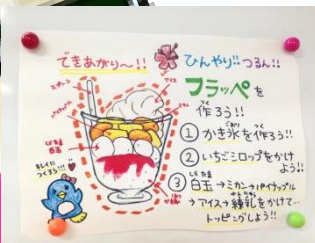 できあがり〜!!
ひんやり!!つるん!!
フラッペを
作ろう!!
① かき氷を作ろう!!
② いちごシロップをかけ
よう!!
③ 白玉→ミカン→パイナップル
→アイス→練乳をかけて…
トッピングしよう!!
アイス
白玉
キレイに
つくろう…!!